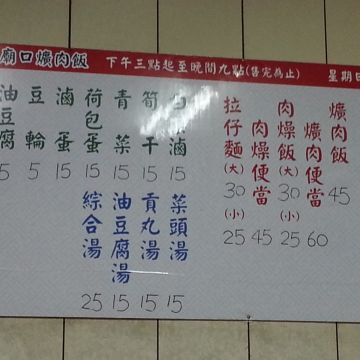 廟口爌肉飯 下午三點起至晚間九點(售完為止) 星期日
爌肉便當 45
肉燥飯 (大)30 (小)25
肉燥便當 60
拉仔麵 (大)30 (小)25 45
白 滷 15
筍干 15
青菜 15
荷包蛋 15
滷蛋 15
豆輪 5
油豆腐 5
菜頭湯 15
貢丸湯 15
油豆腐湯 15
綜合湯 25